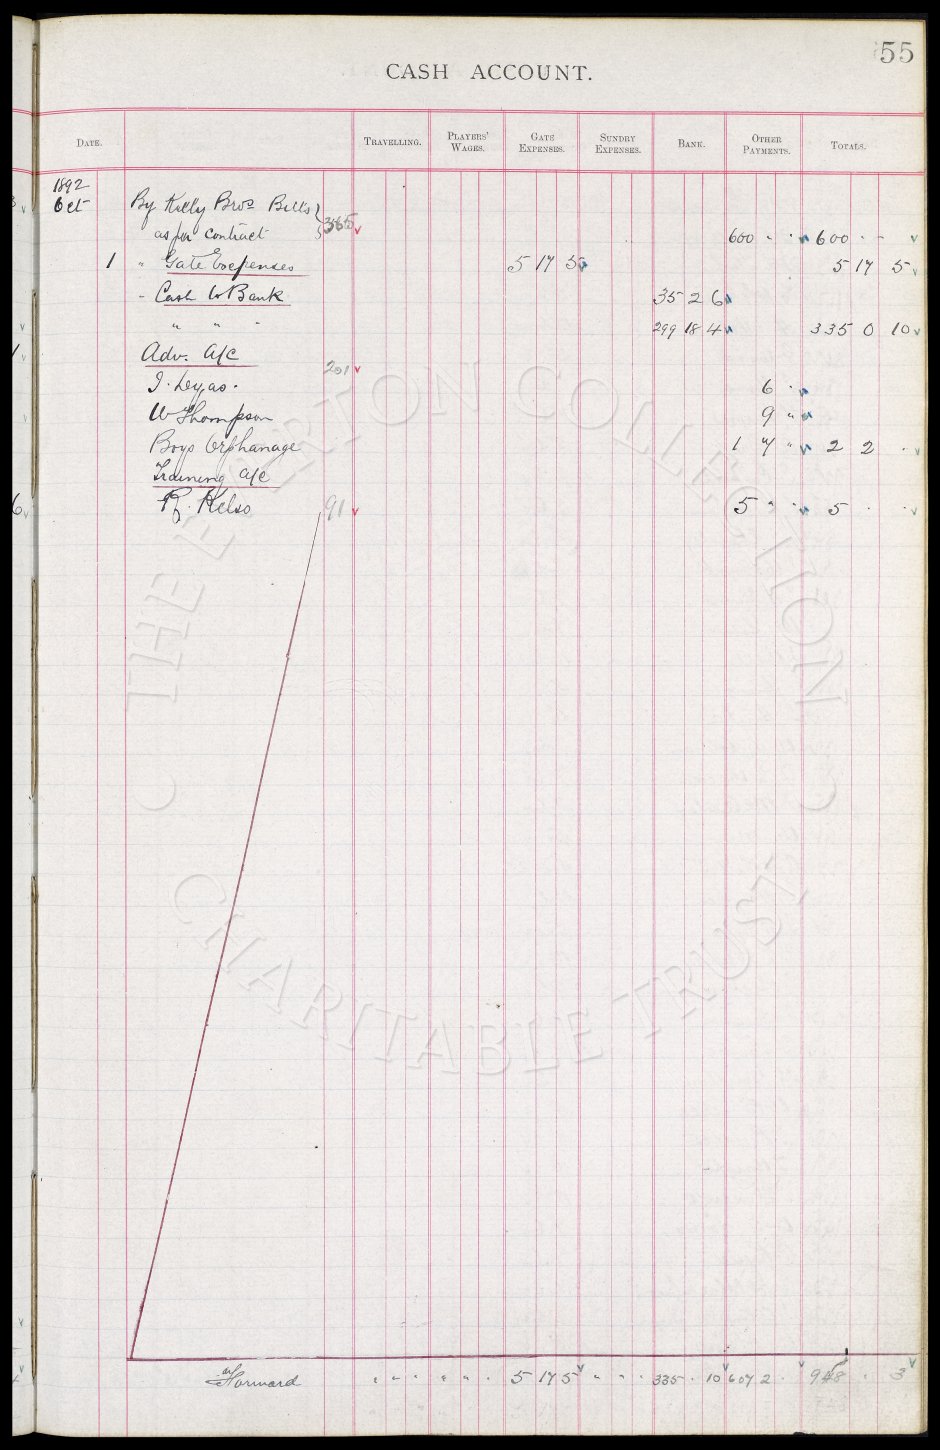 55
CASH ACCOUNT.
DATE. TRAVELLING. PLAYERS' WAGES. GATE EXPENSES. SUNDRY EXPENSES. BANK. OTHER PAYMENTS. TOTALS.
1892
Oct By Kelly Bros Bills
as per contract 365 600 " " 600 " "
1 " Gate Expenses 5 17 5 5 17 5
" Cash to Bank 35 2 6
" " " 299 18 4 335 0 10
Adv. a/c 201
6 "
W Thompson 9 "
Boys Orphanage 1 7 " 2 2 "
Training a/c
R. Kelso 91 5 " " 5 " "
Forward " " " " " " 5 17 5 " " " 335 " 10 607 2 " 948 " 3
THE EVERTON COLLECTION
CHARITABLE TRUST